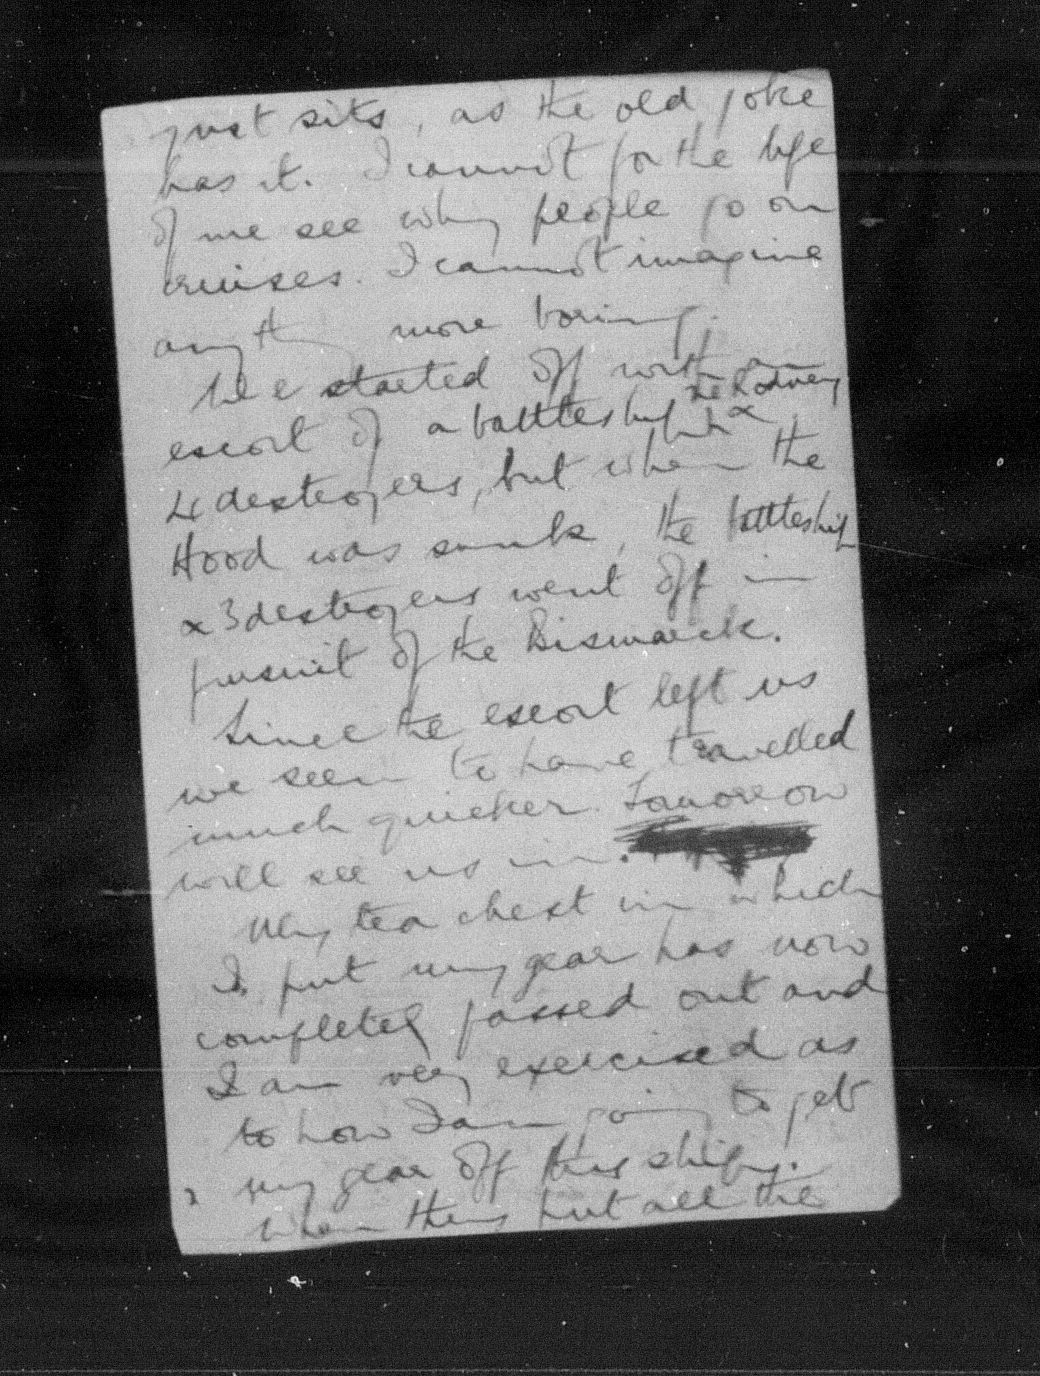 just sits, as the old joke
has it. I cannot for the life
of me see why people go on
cruises. I cannot imagine
anything more boring.
We started off with an
escort of a battleship the Rodney &
4 destroyers, but when the
Hood was sunk, the battleship
& 3 destroyers went off in
pursuit of the Bismarck.
Since the escort left us
we seem to have travelled
much quicker. Tomorrow
will see us in.
My tea chest in which
I put my gear has now
completely passed out and
I am very exercised as
to how I am going to get
my gear off this ship.
When they put all the